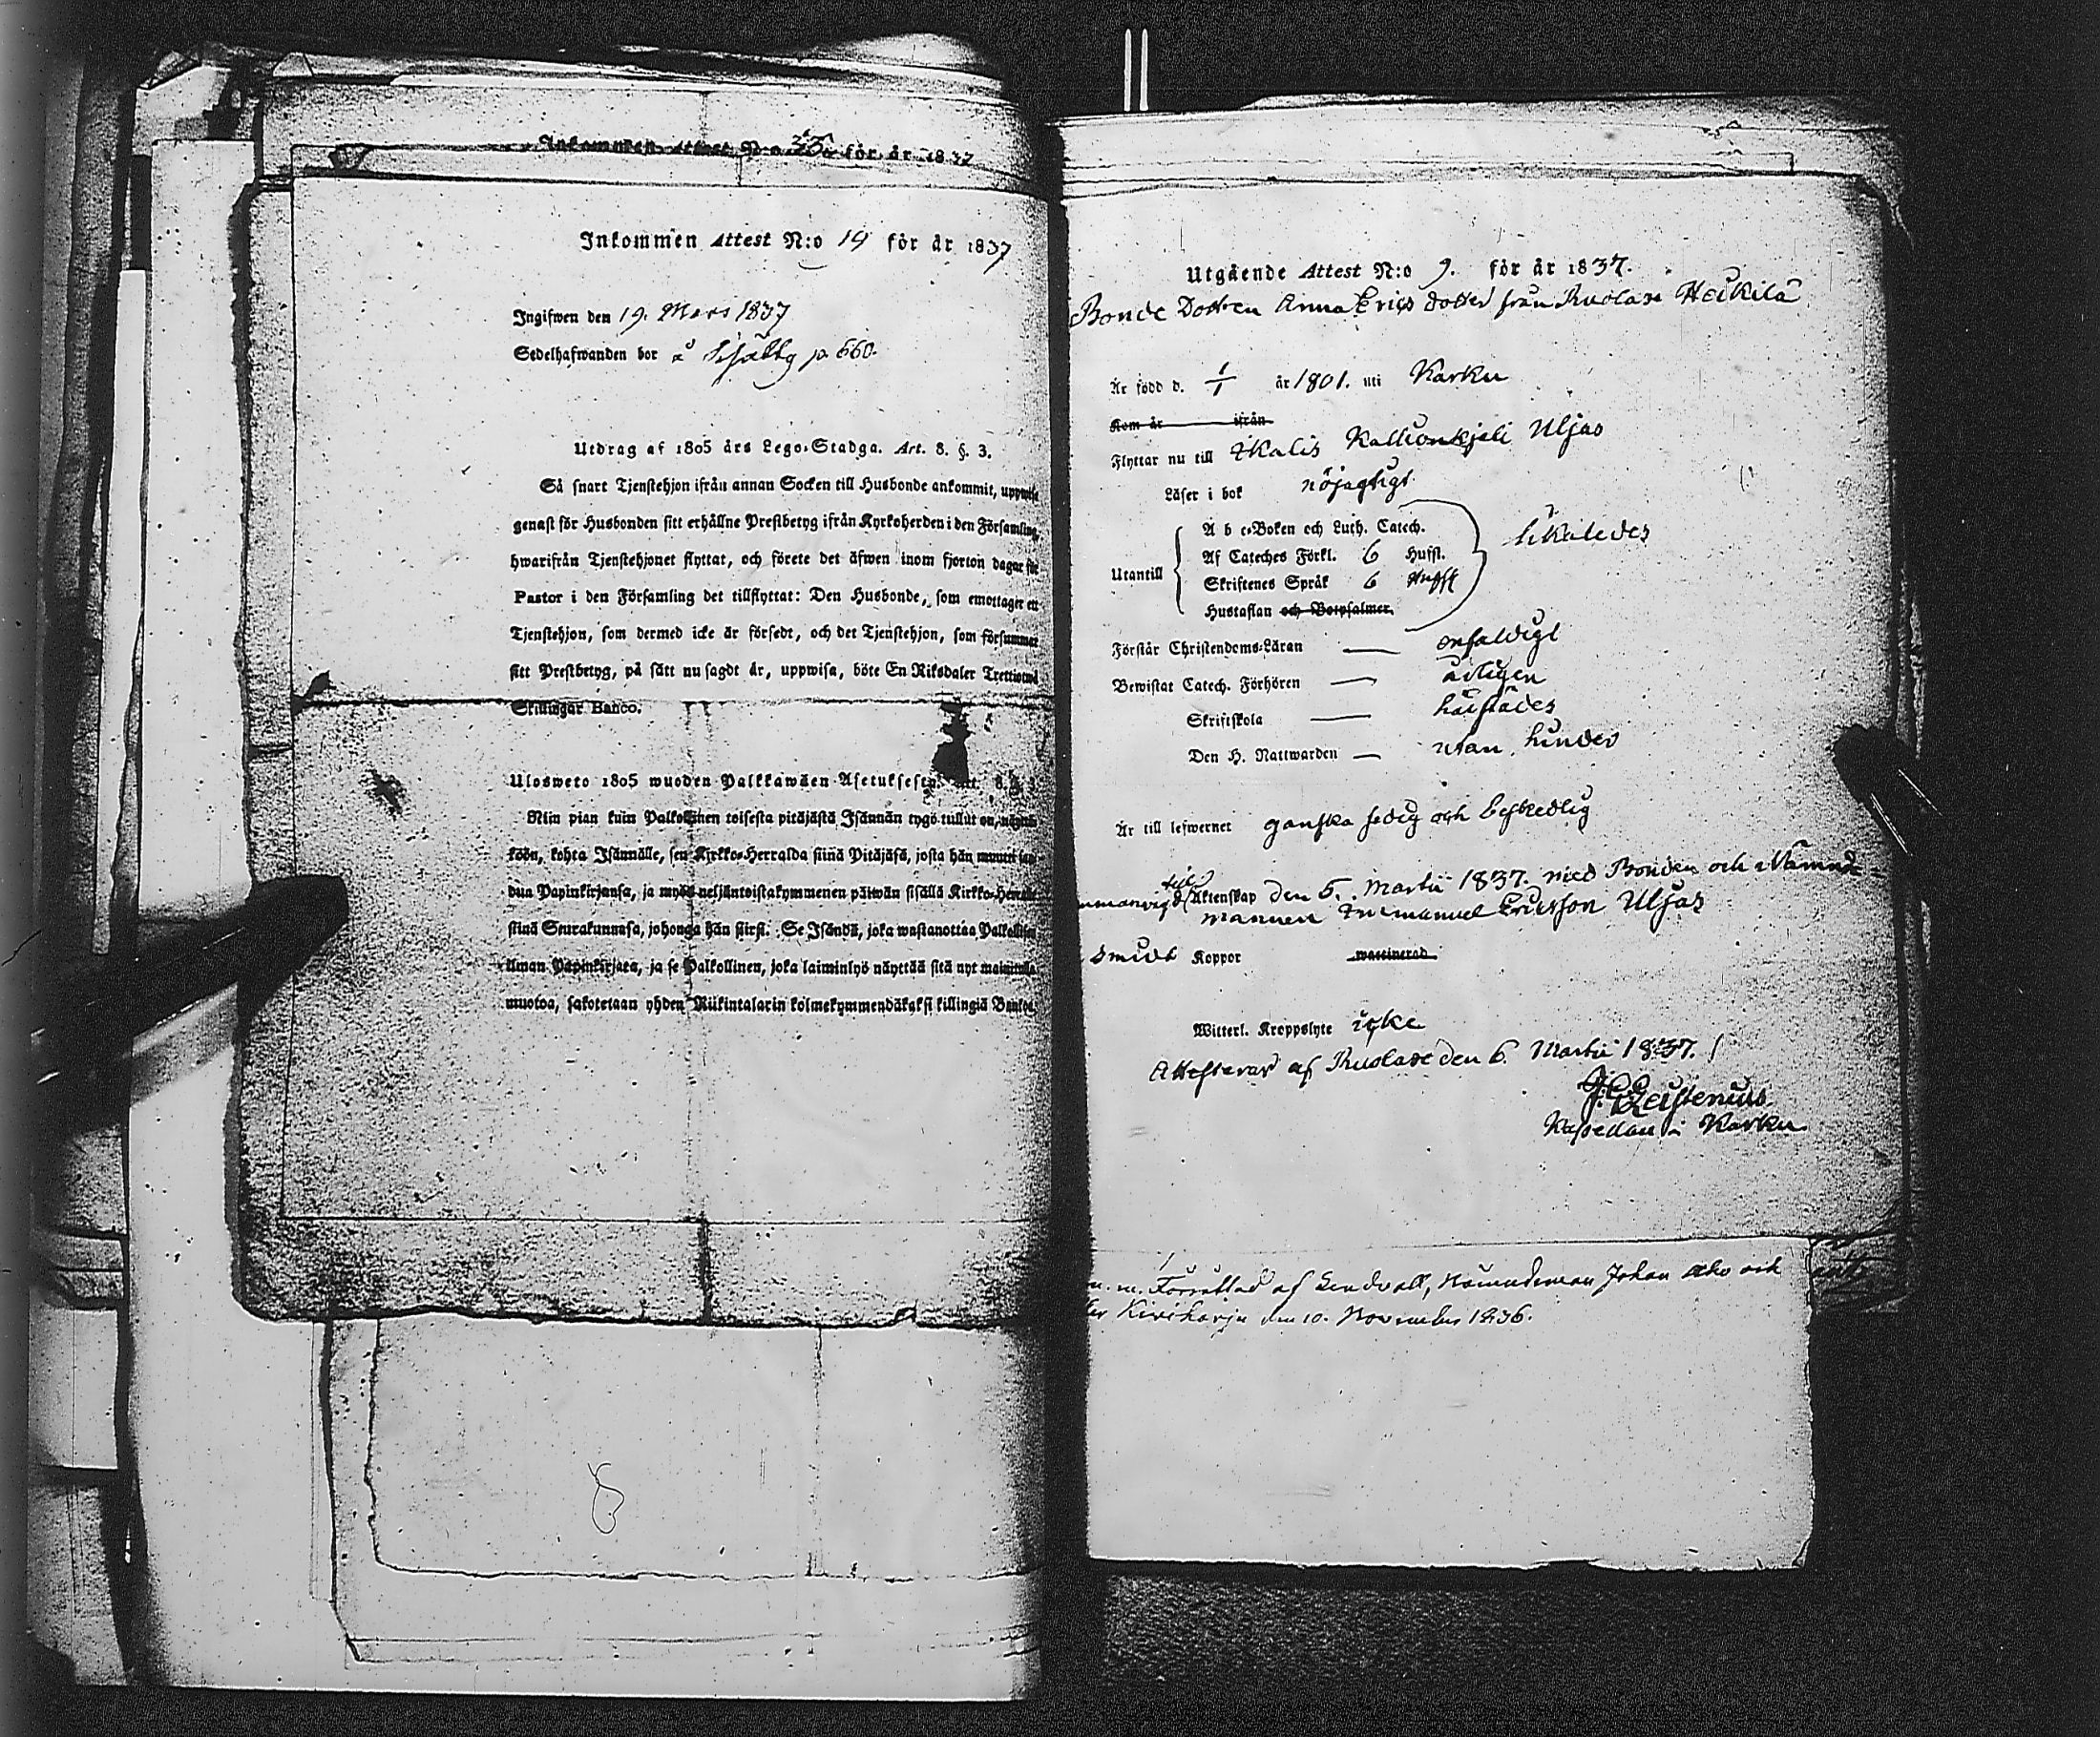 Inkommen Attest N:o 35 för år 1837
Inkommen Attest N:o 19 för år 1837
Ingifwen den 19. Mars 1837
Sedelhafwanden bor å p. 660.
Utdrag af 1805 års Lego-Stadga. Art. 8. §. 3.
Så snart Tjenstehjon ifrån annan Socken till Husbonde ankommit, uppwise
genast för Husbonden sitt erhållne Prestbetyg ifrån Kyrkoherden i den Församling,
hwarifrån Tjenstehjonet flyttat, och förete det äfwen inom fjorton dagar för
Pastor i den Församling det tillflyttat: Den Husbonde, som emottager ett
Tjenstehjon, som dermed icke är försedt, och det Tjenstehjon, som försummar
sitt Prestbetyg, på sätt nu sagdt är, uppwisa, böte En Riksdaler Trettiotwå
Skillingar Banco.
Ulosweto 1805 wuoden Palkkawäen Asetuksesta. Art. 8. §. 3.
Niin pian kuin Palkollinen toisesta pitäjästä Isännän tygö tullut on, näyttä-
köön, kohta Isännälle, sen Kyrkko-Herralda siinä Pitäjäsä, josta hän muutti saa-
dua Papinkirjansa, ja myös neljäntoistakymmenen päiwän sisällä Kirkko-Herralle
siinä Seurakunnasa, johonga hän siirsi. Se Isändä, joka wastanottaa Palkollisen
ilman Papinkirjata, ja se Palkollinen, joka laiminlyö näyttää sitä nyt mainitulla
muotoa, sakotetaan yhden Riikintalarin kolmekymmendäkaksi killingiä Bankos.
Utgående Attest N:o 9. för år 1837.
Bonde Dottren Anna Erics dotter från Ruolase Heikilä
Är född d. 1/1 år 1801. uti Karku
Kom år ifrån
Flyttar nu till Ikalis Uljas
Läser i bok nöjagtigt
A b c-Boken och Luth. Catech. likaledes
Af Cateches Förkl. 6 Hufst.
Utantill
Skriftenes Språk 6 Hufst
Hustaflan och Botpsalmer.
Förstår Christendoms-Läran — enfaldigt
Bewistat Catech. Förhören — årligen
Skriftskola — härstädes
Den H. Nattwarden — utan hinder
Är till lefwernet ganska sedig och beskedlig
till
Äktenskap den 5. Martii 1837. med Bonden och Nämnde-
mannen Immanuel Ericsson Uljas
Koppor waccinerad
Witterl. Kroppslyte icke
Attesterar af Ruolase den 6. Martii 1837.
Leistenius
Kapellan i Karku
Förrättad af Lindvall, Nämndeman Johan Aho och
den 10. November 1836.